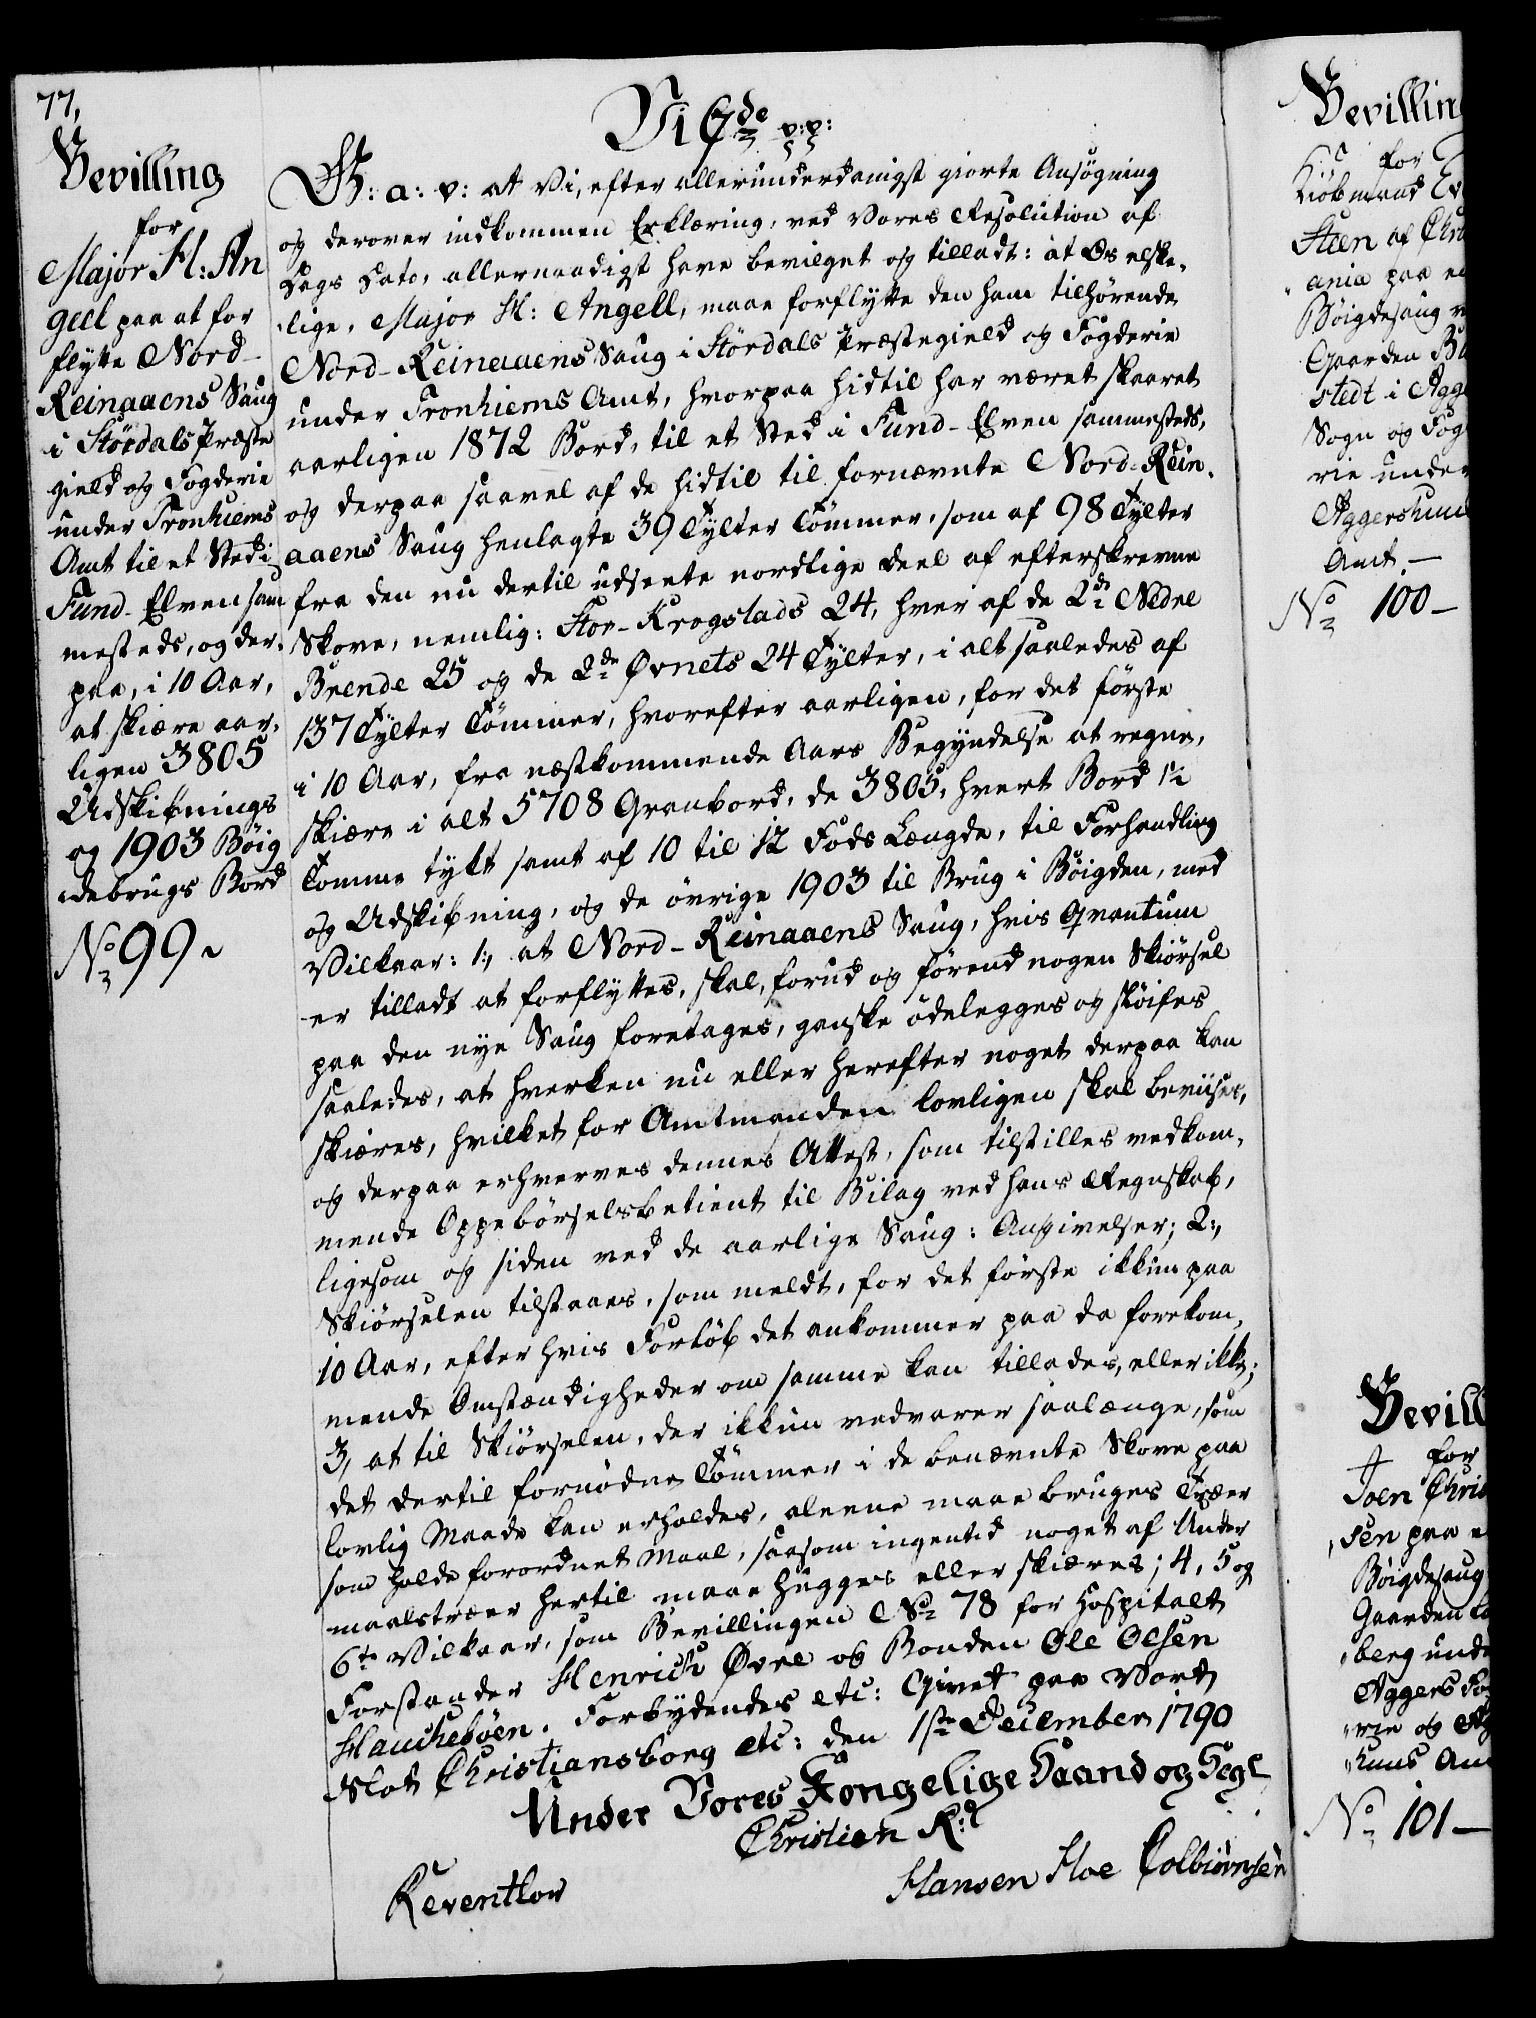 77,
Bevilling
for
Major H: An
gell paa at for
flytte Nord-
Reinaaens Saug
i Stördals Præste
gield og Fogderie
under Tronhiems
Amt til et Sted i
Fund-Elven sam
mesteds, og der-
paa, i 10 Aar,
at skiære aar-
ligen 3805
Udskibnings
og 1903 Böig
debrugs Bord
No 99.
Vi C7de p:p:
G: a: v: at Vi, efter allerunderdanigst giorte Ansögning
og derover indkommen Erklæring, ved Vores Resolution af
Dags Dato, allernaadigst have bevilget og tilladt: at Os elske-
lige, Major H: Angell, maae forflytte den ham tilhörende
Nord-Reinaaens Saug i Stördals Præstegield og Fogderie
under Tronhiems Amt, hvorpaa hidtil har været skaaret
aarligen 1872 Bord, til et Sted i Fund-Elven sammesteds,
og derpaa saavel af de hidtil til fornævnte Nord-Rein-
aaens Saug henlagte 39 Tylter Tömmer, som af 98 Tylter
fra den nu dertil udseete nordlige Deel af efterskrevne
Skove, nemlig: Stor-Krogstads 24, hver af de 2de Nedre
Brende 25 og de 2de Øvnets 24 Tylter, i alt saaledes af
137 Tylter Tömmer, hvorefter aarligen, for det förste
i 10 Aar, fra næstkommende Aars Begyndelse at regne,
skiære i alt 5708 Granbord, de 3805, hvert Bord 1½
Tomme tykt samt af 10 til 12 Fods Længde, til Forhandling
og Udskibning, og de övrige 1903 til Brug i Böigden, med
Vilkaar: 1, at Nord-Reinaaens Saug, hvis Qvantum
er tilladt at forflyttes, skal, forud og förend nogen Skiörsel
paa den nye Saug foretages, ganske ödelegges og slöifes
saaledes, at hverken nu eller herefter noget derpaa kan
skiæres, hvilket for Amtmanden lovligen skal beviises,
og derpaa erhverves dennes Attest, som tilstilles vedkom-
mende Oppebörselsbetient til Bilag ved hans Regnskab,
ligesom og siden ved de aarlige Saug: Angivelser; 2,
Skiörselen tilstaaes, som meldt, for det förste ikkun paa
10 Aar, efter hvis Forlöb det ankommer paa da forekom-
mende Omstændigheder om samme kan tillades, eller ikke;
3, at til Skiörselen, der ikkun vedvarer saalænge, som
det dertil fornödne Tömmer i de benævnte Skove paa
lovlig Maade kan erholdes, aleene maae bruges Træer
som holde forordnet Maal, saasom ingentid noget af Under
maalstræer hertil maae hugges eller skiæres; 4, 5 og
6te Vilkaar, som Bevillingen No 78 for Hospitalt
Forstander Henrich Øvre og Bonden Ole Olsen
Hauchebøen. Forbydendes etc: Givet paa Vort
Slot Christiansborg etc: den 1ste December 1790
Under Vores Kongelige Haand og Segl
Christian R:d
Reventlow
Hansen Hoe Colbiörnsen
Bevilling
for
Kiöbmand
Steen af Chri
ania paa
Böigdesaug
Gaarden
stedt i Agge
Sogn og Fog
rie under
Aggershuus
Amt.
No 100
Bevill
for
Joen Chris
sen paa
Böigdesaug
Gaarden
berg unde
Aggers Fog
rie og
huus Am
No 101